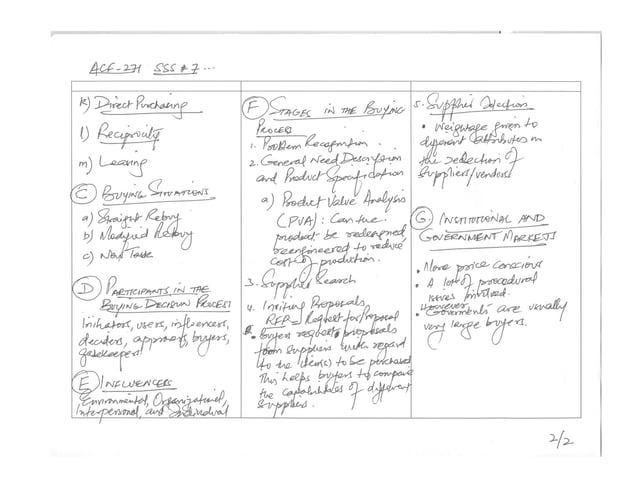 ACF-271 SSS #7...
k) Direct Purchasing
l) Reciprocity
m) Leasing
C BUYING SITUATIONS
a) Straight Rebuy
b) Modified Rebuy
c) New Task
D PARTICIPANTS IN THE
BUYING DECISION PROCESS
Initiators, users, influencers,
deciders, approvers, buyers,
gatekeepers
E INFLUENCES
Environmental, Organizational,
interpersonal, and Individual
F STAGES IN THE BUYING
PROCESS
1. Problem Recognition.
2. General Need Description
and Product Specification
a) Product Value Analysis
(PVA): Can the
product be redesigned
reengineered to reduce
cost of production.
3. Supplier Search
4. Inviting Proposals
RFP = Request for Proposal
Buyer requests proposals
from suppliers with regard
to the item(s) to be purchased
This helps buyers to compare
the capabilities of different
suppliers.
5. Supplier Selection
• Weightage given to
different attributes in
the selection of
suppliers/vendors
G INSTITUTIONAL AND
GOVERNMENT MARKETS
• More price conscious
• A lot of procedural
issues involved.
However,
• Governments are usually
very large buyers.
2/2